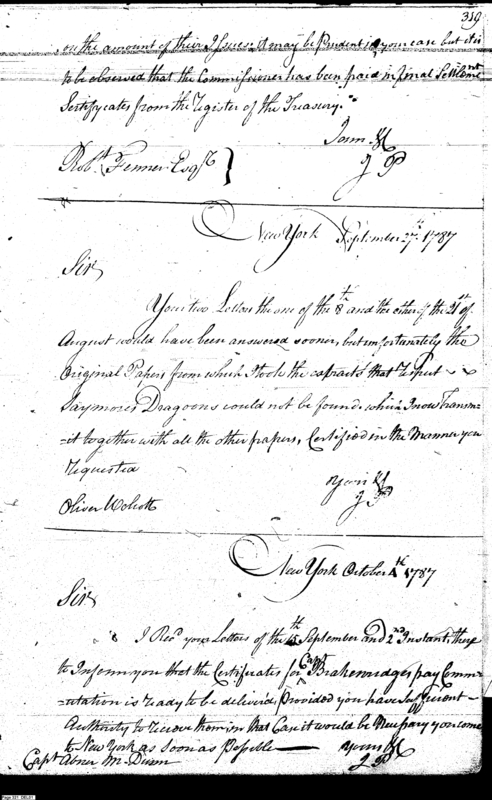 319
on the amount of their Issues: it may be Prudent in your case but it is
to be observed that the Commissioner has been paid in Final Settlemnt
Certificates from the Register of the Treasury."
I am &c
J P
Robt. Fenner Esqr.
New York September 27th. 1787
Sir
Your two Letters the one of the 8th and the other of the 21st of
August would have been answered sooner, but unfortunately the
Original Papers from which I took the extracts that respect
Saymores Dragoons could not be found. which I now Transm-
-it together with all the other papers, Certified in the Manner you
Requested
Yours &c
J P
Oliver Wolcott
New York October 4th 1787
Sir
I Recd your Letters of the 15th September and 2nd Instant, these
to Inform you that the Certificates for Capt Brakenridges pay Comm-
-utation is ready to be delivered, Provided you have sufficient
Authority to receive them in that Case it would be Necessary you come
to New York as soon as Possible
Yours &c
J P
Capt Abner M. Dunn